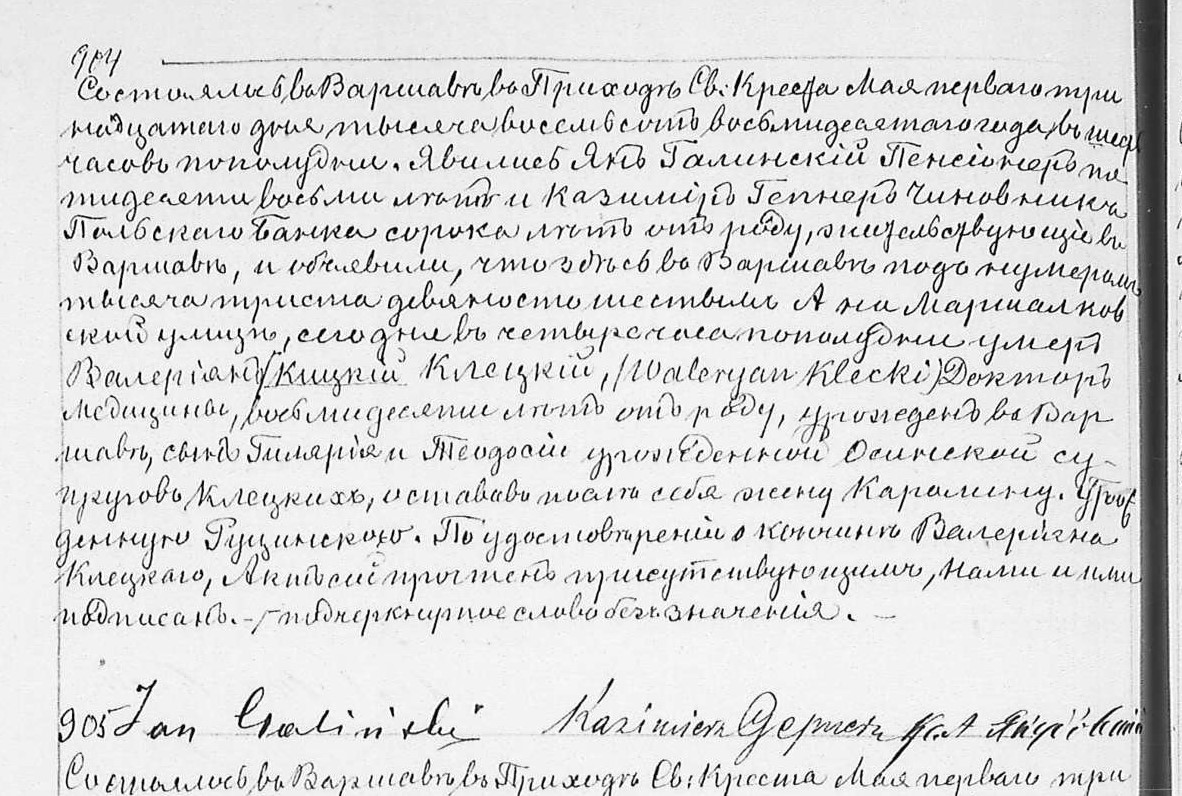 904
Состоялось въ Варшавѣ въ Приходѣ Св: Креста Мая перваго три
надцатаго дня тысяча восемьсотъ восьмидесятаго года, въ шесть
часовъ пополудни. Явились Янъ Галинскій Пенсіонеръ пя
тидесяти восьми лѣтъ и Казиміръ Гепнеръ Чиновникъ
Польскаго Банка сорока лѣтъ отъ роду, жительствующіе въ
Варшавѣ, и объявили, что здѣсь въ Варшавѣ подъ нумеромъ
тысяча триста девяносто шестымъ А на Маршалков
ской улицѣ, сегодня въ четыре часа пополудни умеръ
Валеріянъ / Кицкій Клецкій, /Waleryan Klecki/ Докторъ
Медицины, восьмидесяти лѣтъ отъ роду, урожденъ въ Вар
шавѣ, сынъ Гилярія и Теодосіи урожденной Осинской су-
пруговъ Клецкихъ, оставивъ послѣ себя жену Каролину. Урож
денную Гущинскою. По удостовѣреніи о кончинѣ Валеріяна
Клецкаго, Актъ сей прочтенъ присутствующимъ, Нами и ими
подписанъ. - / подчеркнутое слово безъ значенія. —
905 Jan Galiński Kazimierz Gepner
Состоялось въ Варшавѣ въ Приходѣ Св: Креста Мая перваго три